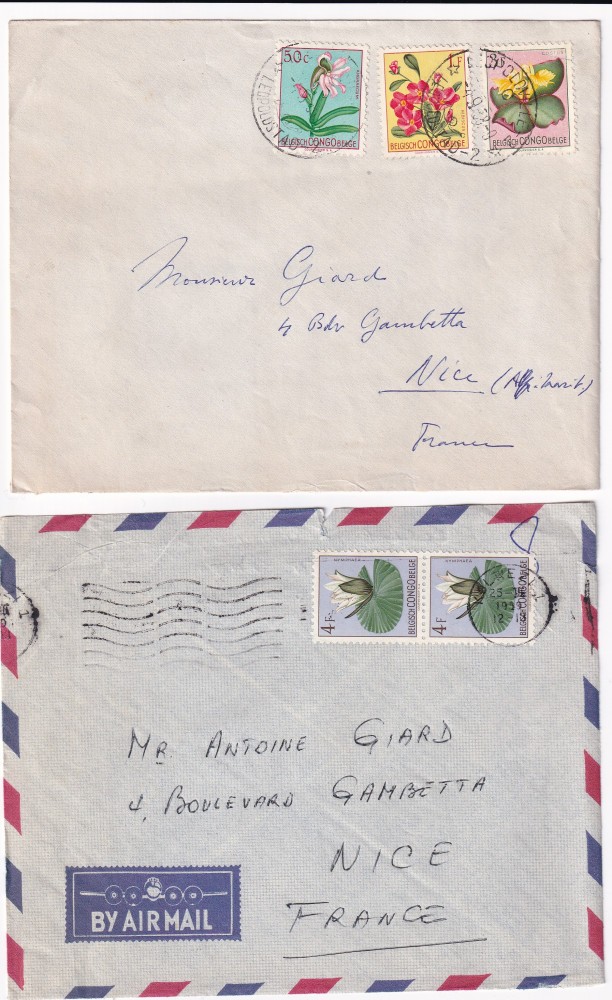 50c
1F
BELGISCH CONGO BELGE
BELGISCH CONGO BELGE
BELGISCH CONGO BELGE
Monsieur Giard
4 Bdv Gambetta
Nice
France
NYMPHAEA
NYMPHAEA
BELGISCH CONGO BELGE
BELGISCH CONGO BELGE
4F
4F
MR. ANTOINE GIARD
4, BOULEVARD GAMBETTA
NICE
FRANCE
BY AIR MAIL